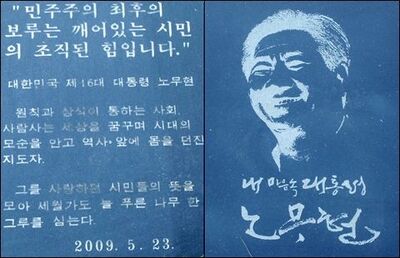 "민주주의 최후의
보루는 깨어있는 시민
의 조직된 힘입니다."
대한민국 제16대 대통령 노무현
원칙과 상식이 통하는 사회,
사람사는 세상을 꿈꾸며 시대의
모순을 안고 역사 앞에 몸을 던진
지도자.
그를 사랑하던 시민들의 뜻을
모아 세월가도 늘 푸른 나무 한
그루를 심는다.
2009. 5. 23.
내 마음속 대통령
노무현